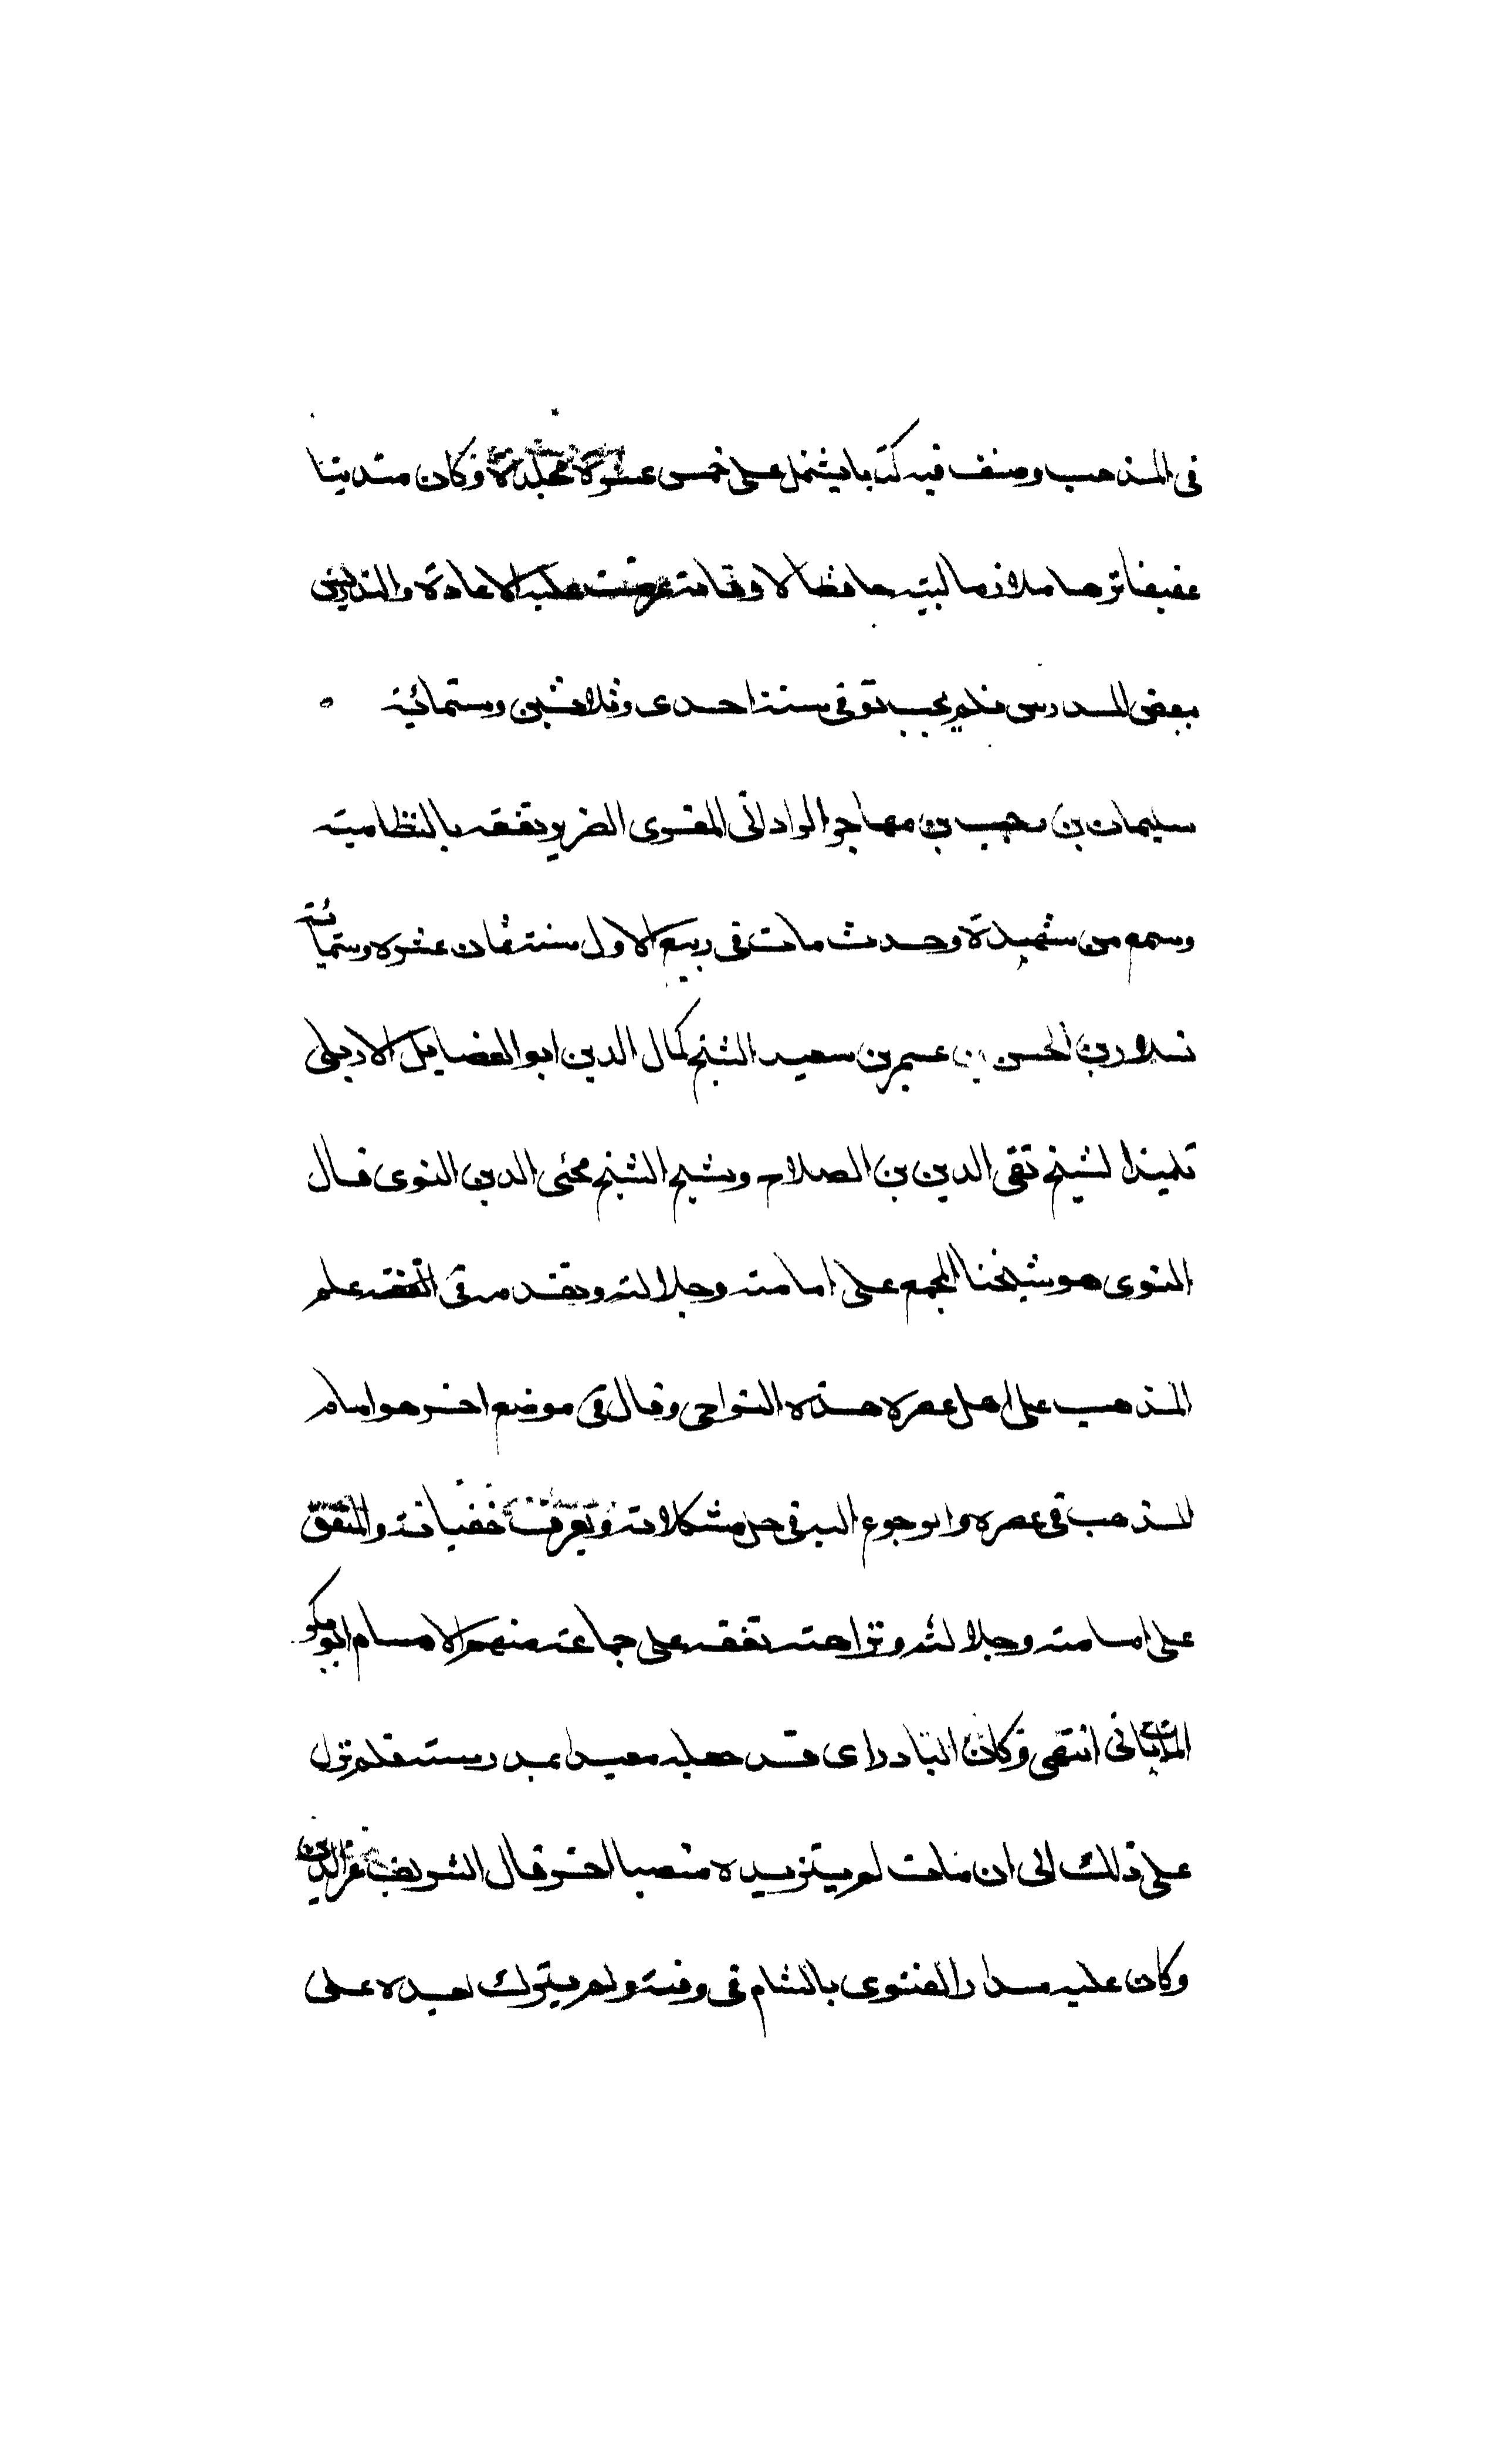 فى المذهب وصنف فيه كتابا يشتمل على خمس عشرة مجلدة وكان متدينا
عفيفا نزها ملازما لبيته حافظا لاوقاته عرضت عليه الاعادة والتدريس
ببعض المدارس فلم يجب توفى سنة احدى وثلاثين وستمائة
سليمان بن رجب بن مهاجر الراذانى المقرى الضرير تفقه بالنظامية
وسمع من شهيدة وحدث مات فى ربيع الاول سنة ثمان عشره وستمائة
سلار بن الحسن بن عمر بن سعيد الشيخ كمال الدين ابو الفضايل الاربلى
تلميذ الشيخ تقى الدين بن الصلاح وشيخ الشيخ محى الدين النووى قال
النووى هو شيخنا المجمع على امامته وجلالته وتقدمه فى الفقه علم
المذهب على اهل عصره هذه النواحى وقال فى موضع اخر هو امام
المذهب فى عصره والرجوع اليه فى حل مشكلاته وتعرف خفياته والمتفق
على امامته وجلالته ونزاهته تفقه على جماعة منهم الامام ابو بكر
الماهانى انتهى وكان البادراى قد جعله معيدا بمدرسته فلم يزل
على ذلك الى ان مات لم يتزيده منصبا اخر قال الشريف عز الدين
وكان عليه مدار الفتوى بالشام فى وقته ولم يترك بعده على